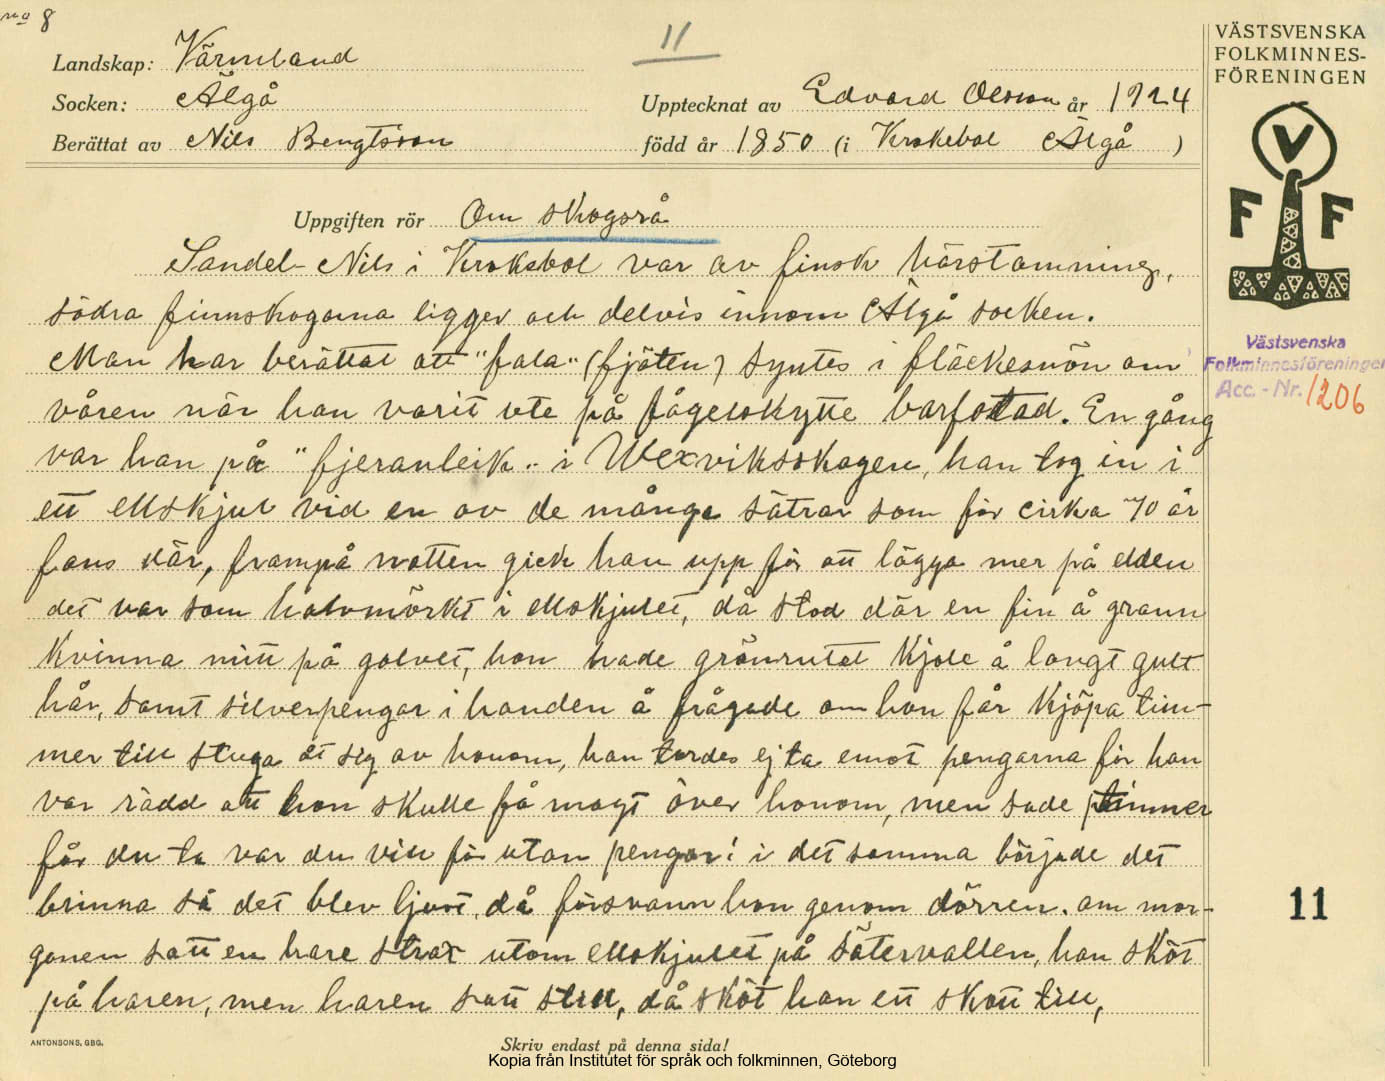 no 8
11
Landskap: Värmland
Socken: Älgå
Upptecknat av Edvard Olsson år 1924
Berättat av Nils Bengtsson
född år 1850 (i Krokebol Älgå )
VÄSTSVENSKA
FOLKMINNES-
FÖRENINGEN
V
F F
Uppgiften rör Om skogsrå
Sandel-Nils i Krokebol var av finsk härstamning,
södra finnskogarna ligger och delvis innom Älgå socken.
Man har berättat att "fala" (fjäten) syntes i fläckesnön om
våren när han varit ute på fågelskytte barfotad. En gång
var han på "fjeranleik" i Wexviksskogen, han tog in i
ett ellskjul vid en av de många sätrar som för cirka 70 år
fans där, frampå natten gick han upp för att lägga mer på elden
det var som halvmörkt i ellskjulet, då stod där en fin å grann
kvinna mitt på golvet, hon hade grönrutat kjole å langt gult
hår, samt silverpengar i handen å frågade om hon får kjöpa tim-
mer till stuga åt sig av honom, han tordes ej ta emot pengarna för han
var rädd att hon skulle få magt över honom, men sade timmer
får du ta var du vill för utan pengar! i det samma började det
brinna så det blev ljust, då försvann hon genom dörren. om mor-
gonen satt en hare strax utom ellskjulet på sätervallen, han sköt
på haren, men haren satt still, då sköt han ett skott till,
Västsvenska
Folkminnesföreningen
Acc.-Nr. 1206
11
ANTONSONS, GBG.
Skriv endast på denna sida!
Kopia från Institutet för språk och folkminnen, Göteborg